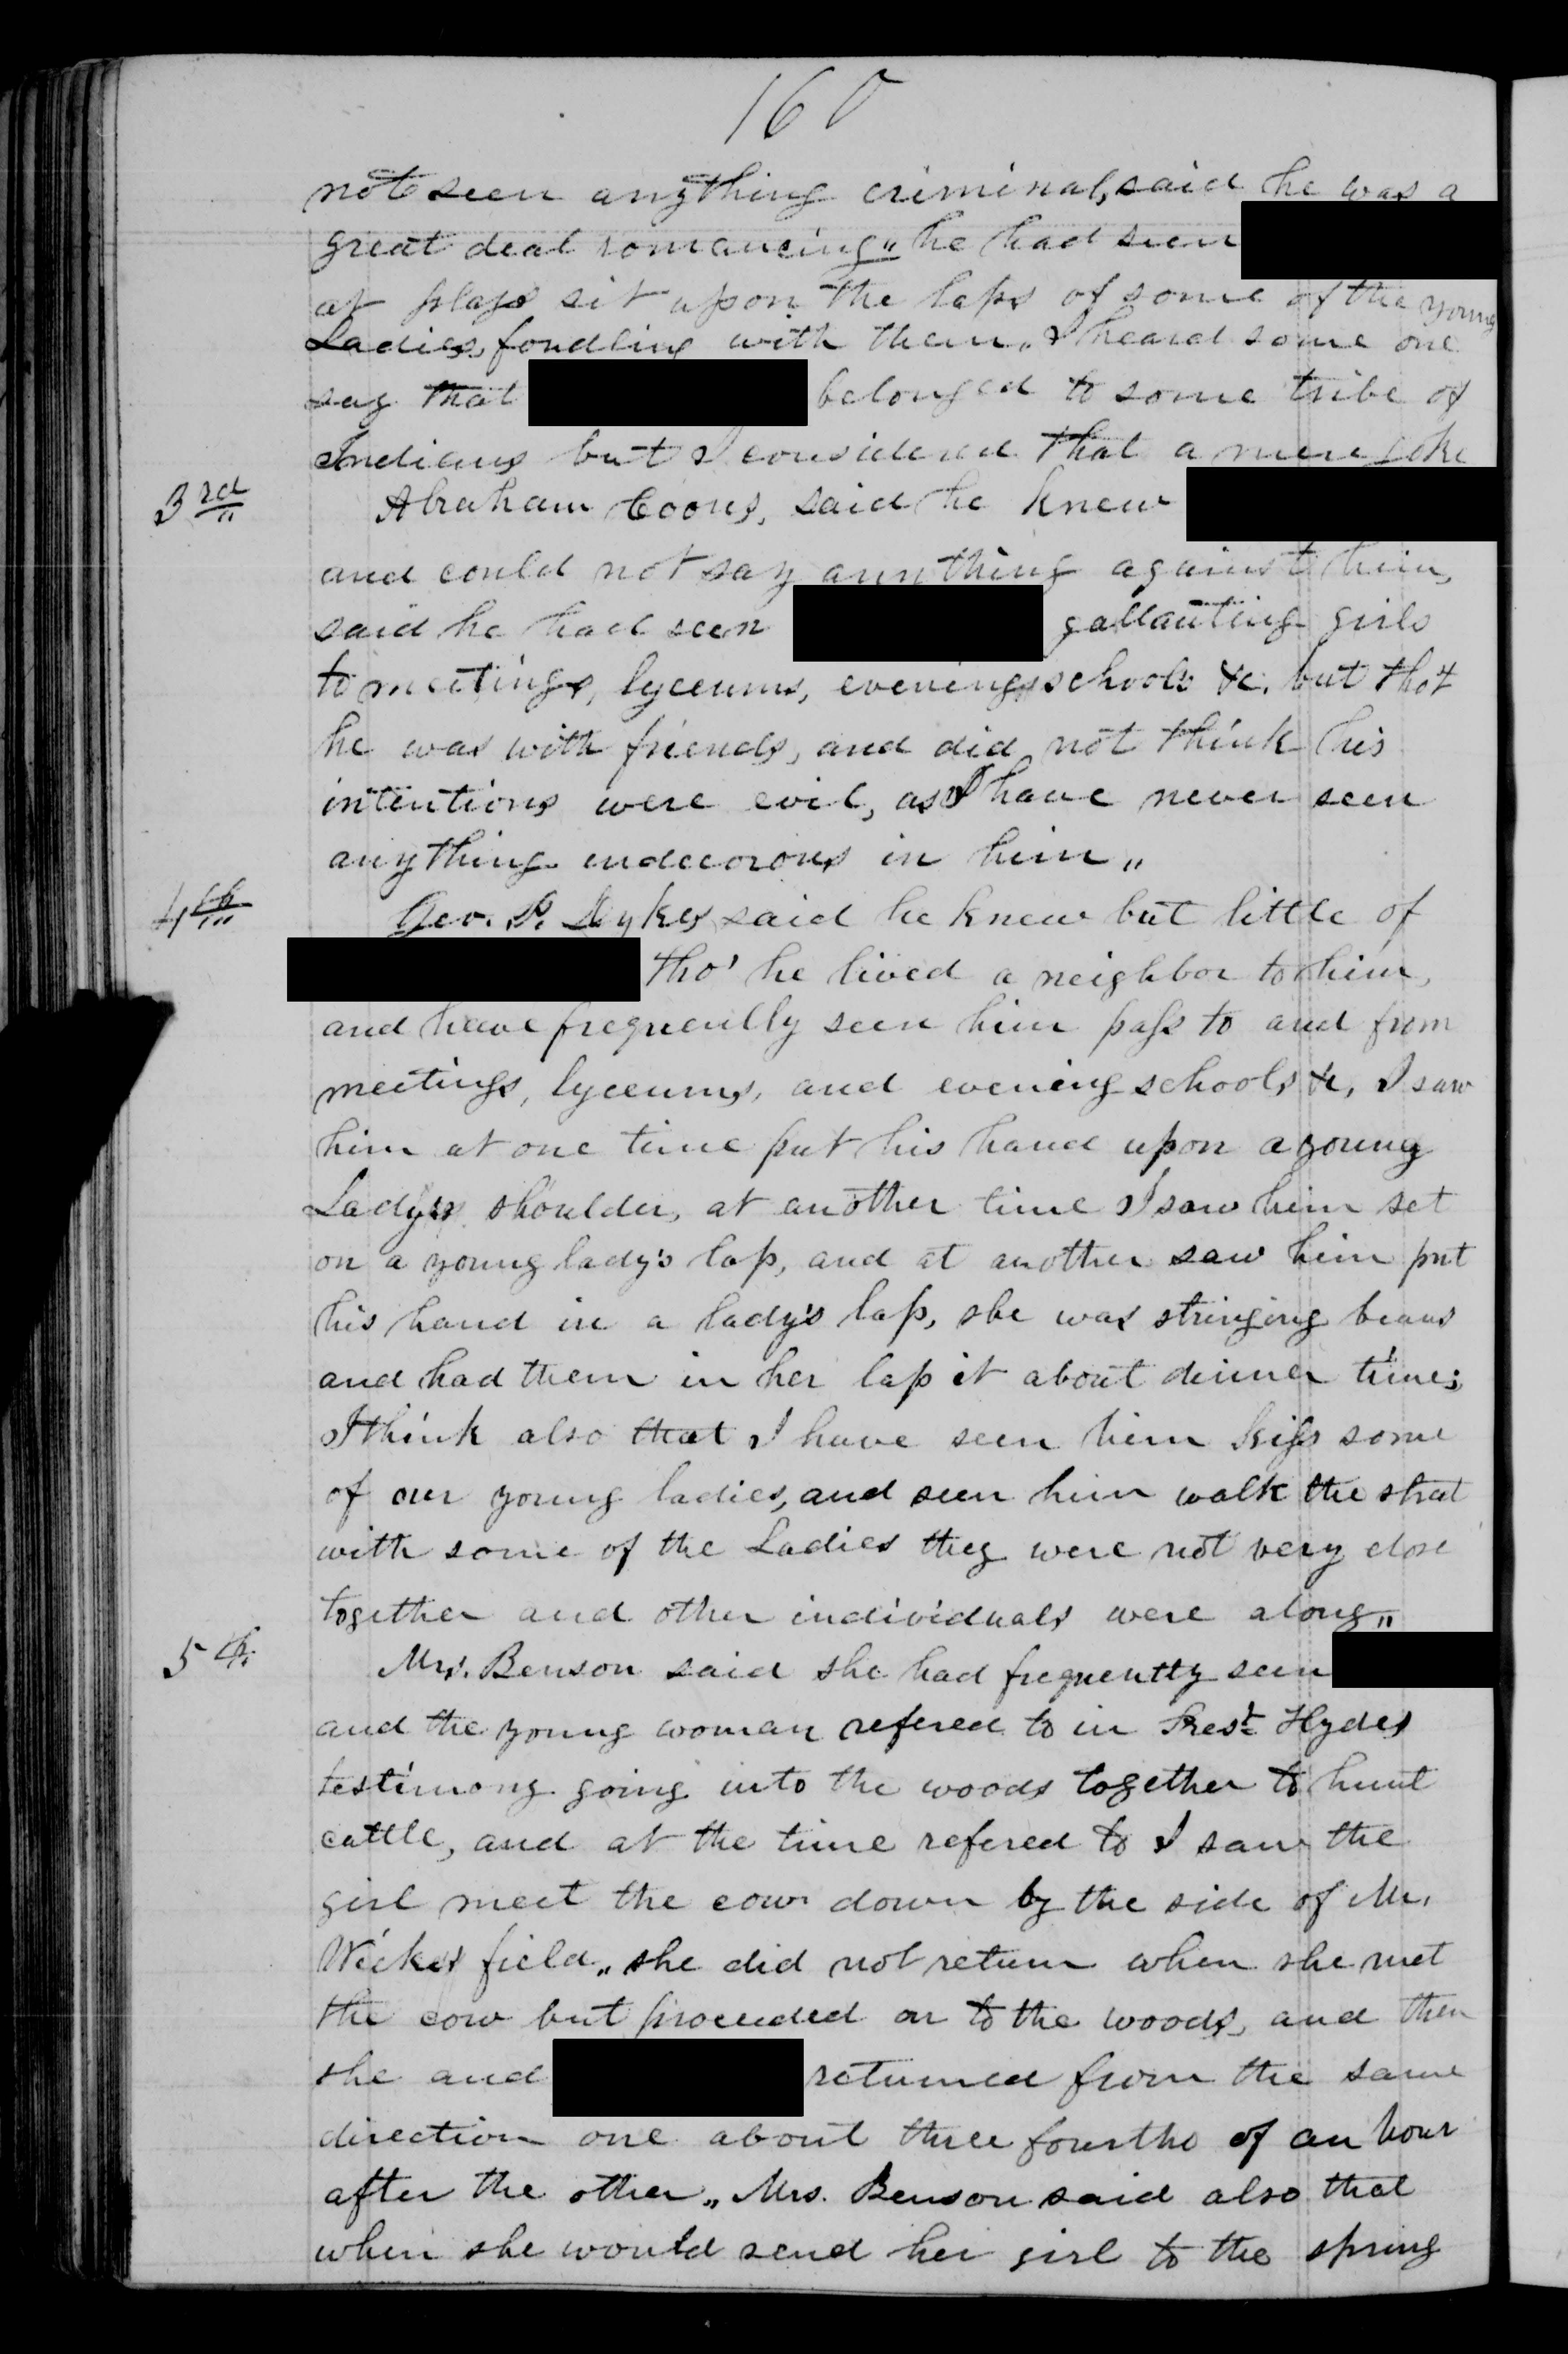 160
not seen anything criminal, said he was a
great deal romancing" he had seen
at plays sit upon the laps of some of the young
Ladies, fondling with them, I heard some one
say that belonged to some tribe of
Indians but I considered that a mere joke
3rd Abraham Coons, said he knew
and could not say annthing against him,
said he had seen gallanting girls
to meetings, lyceums, evenings schools &c. but that
he was with friends, and did not think his
intentions were evil, as I have never seen
anything indecorous in him"
4th Geo. P. Dykes said he knew but little of
tho' he lived a neighbor to him,
and have frequently seen him pass to and from
meetings, lyceums, and evening schools &c, I saw
him at one time put his hand upon a young
Lady's shoulder, at another time I saw him set
on a young lady's lap, and at another saw him put
his hand in a lady's lap, she was stringing beans
and had them in her lap it about dinner time;
I think also that I have seen him kiss some
of our young ladies, and seen him walk the street
with some of the Ladies they were not very close
together and other individuals were along"
5th. Mrs. Benson said she had frequently seen
and the young woman refered to in Prest Hydes
testimony going into the woods together to hunt
cattle, and at the time refered to I saw the
girl meet the cow down by the side of Mr.
Weekes field" she did not return when she met
the cow but proceeded on to the woods, and then
she and returned from the same
direction one about three fourths of an hour
after the other" Mrs. Benson said also that
when she would send her girl to the spring